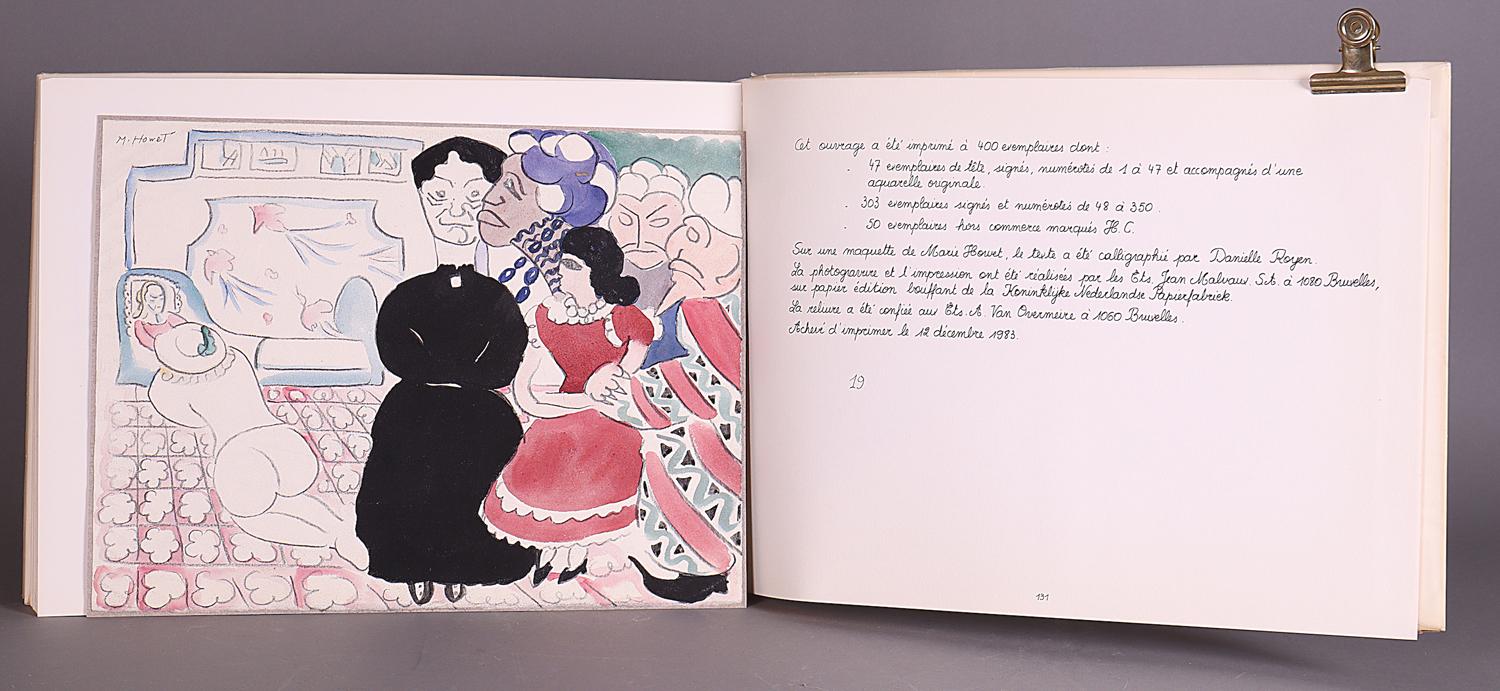 M. Howet
Cet ouvrage a été imprimé à 400 exemplaires dont :
. 47 exemplaires de tête, signés, numérotés de 1 à 47 et accompagnés d'une
aquarelle originale.
. 303 exemplaires signés et numérotés de 48 à 350.
. 50 exemplaires hors commerce marqués H.C.
Sur une maquette de Marie Howet, le texte a été calligraphié par Danielle Royen.
La photogravure et l'impression ont été réalisées par les Éts. Jean Malvaux S.A. à 1080 Bruxelles,
sur papier édition bouffant de la Koninklijke Nederlandse Papierfabriek.
La reliure a été confiée aux Éts. A. Van Overmeire à 1060 Bruxelles.
Achevé d'imprimer le 12 décembre 1983.
19
131